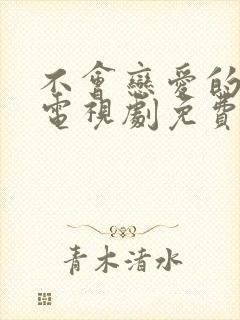 不會戀愛的
電視劇免費
青木清水